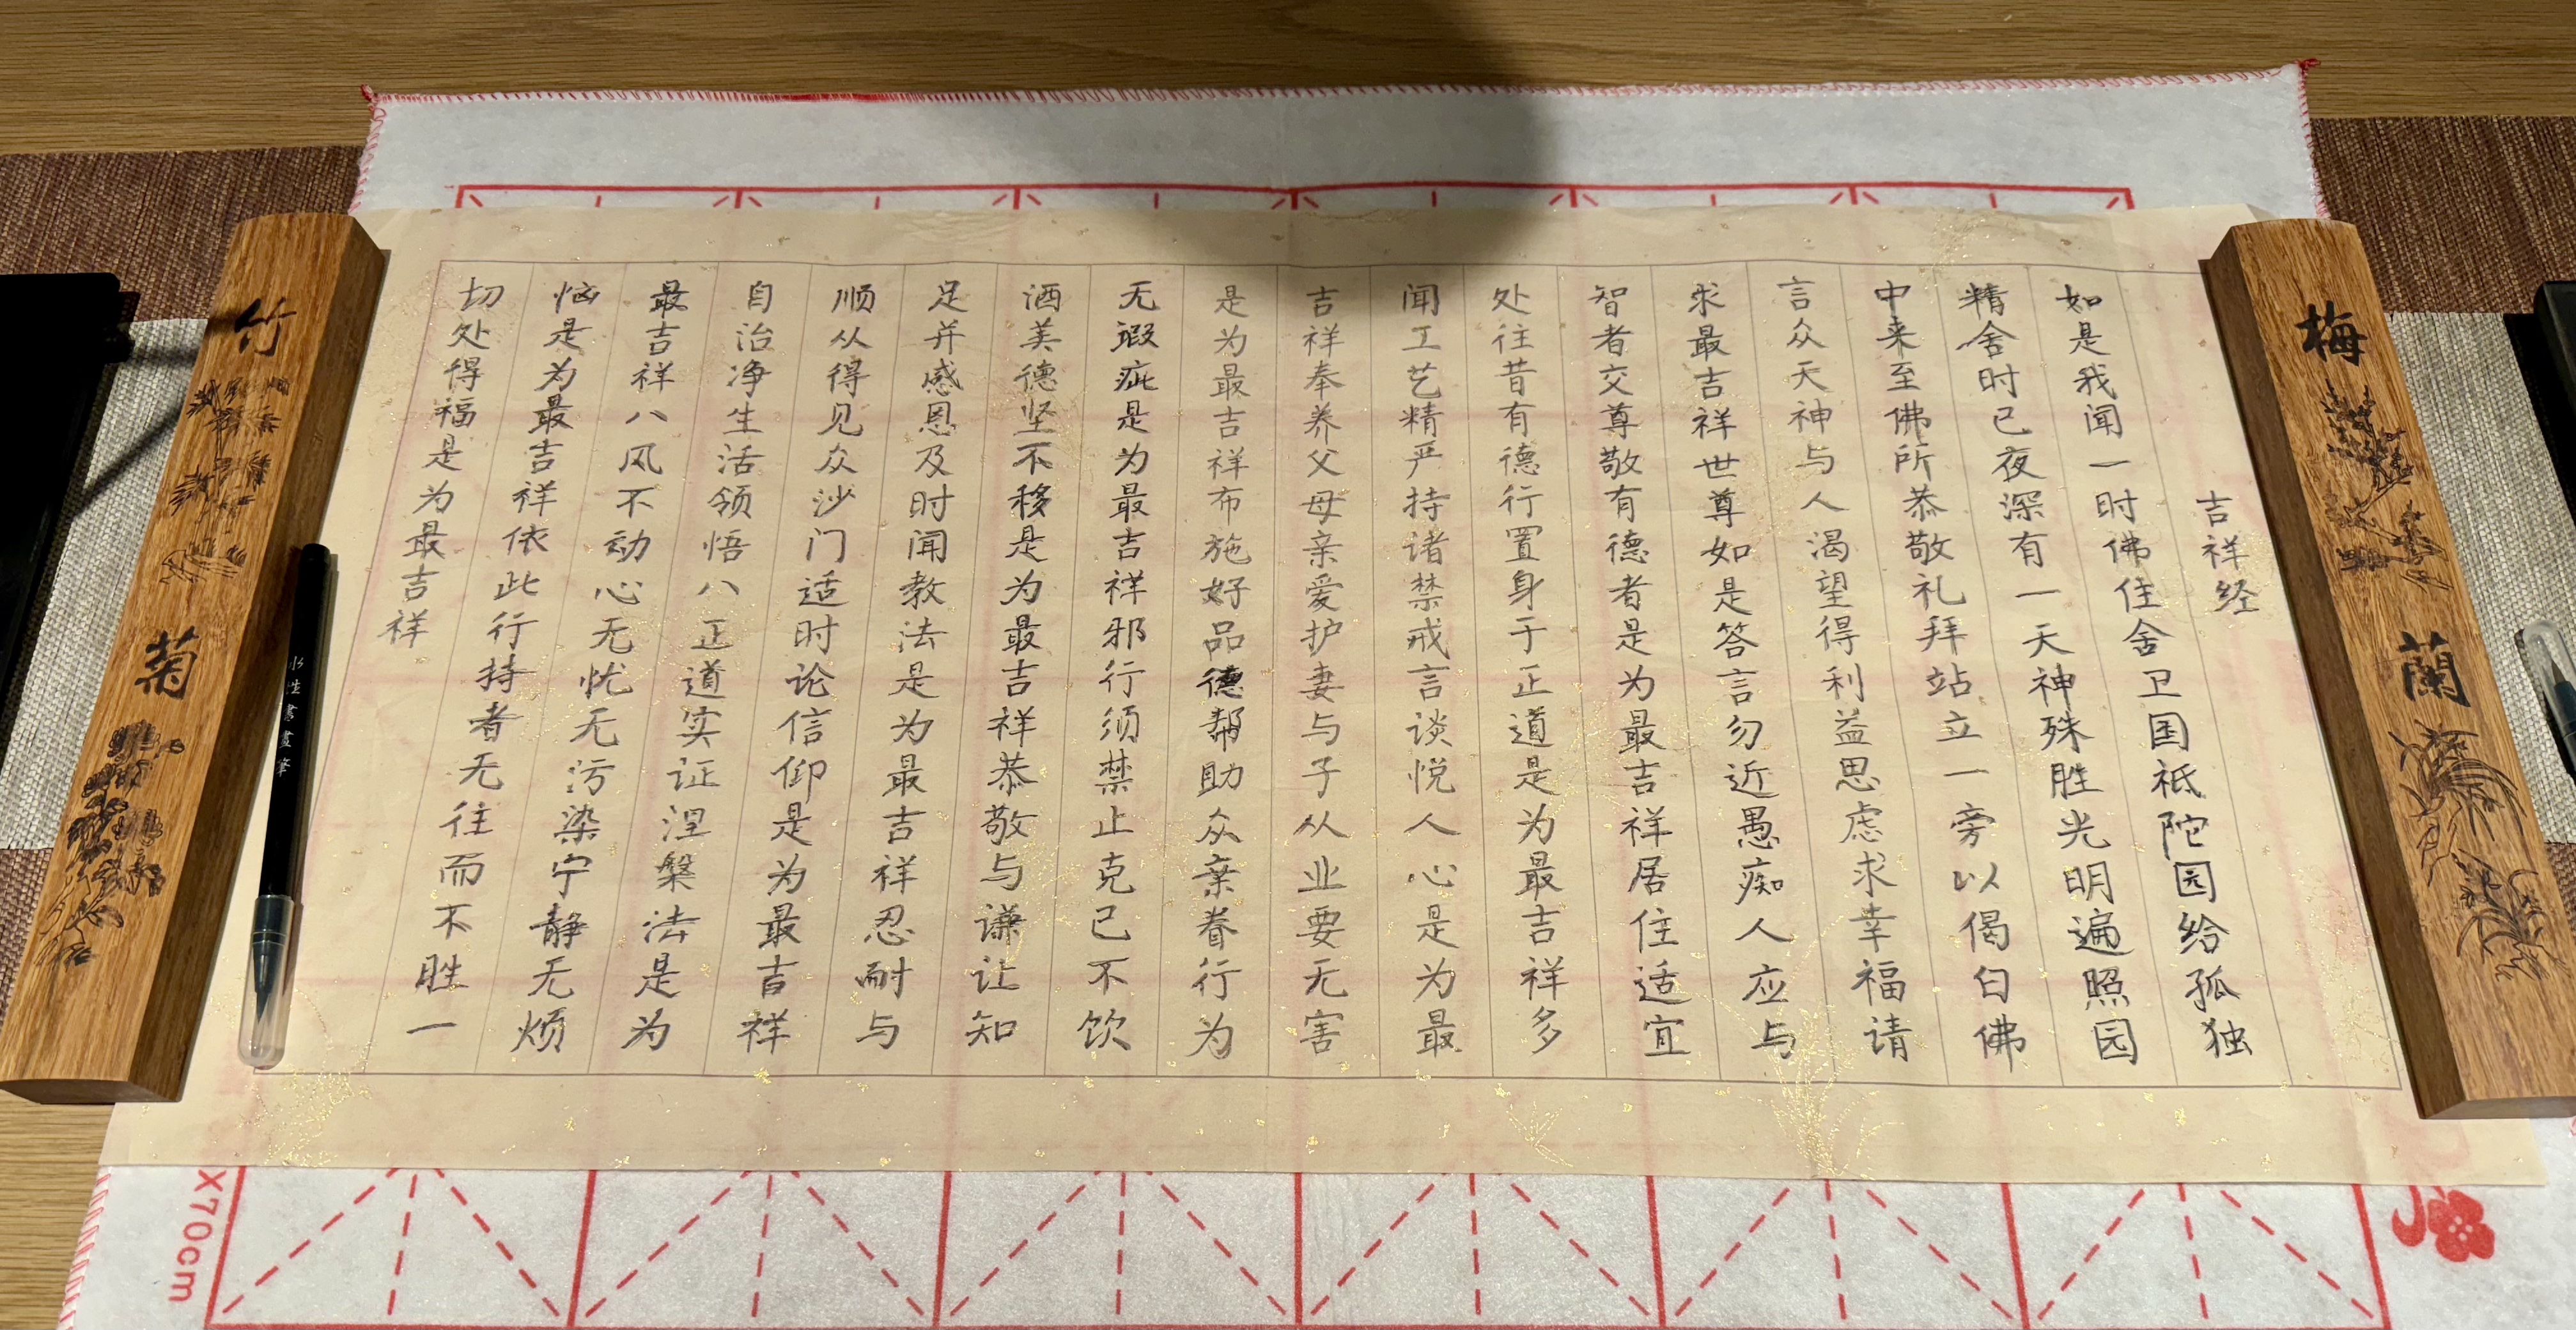 吉祥经
如是我闻一时佛住舍卫国祇陀园给孤独
精舍时已夜深有一天神殊胜光明遍照园
中来至佛所恭敬礼拜站立一旁以偈白佛
言众天神与人渴望得利益思虑求幸福请
求最吉祥世尊如是答言勿近愚痴人应与
智者交尊敬有德者是为最吉祥居住适宜
处往昔有德行置身于正道是为最吉祥多
闻工艺精严持诸禁戒言谈悦人心是为最
吉祥奉养父母亲爱护妻与子从业要无害
是为最吉祥布施好品德帮助众亲眷行为
无瑕疵是为最吉祥邪行须禁止克己不饮
酒美德坚不移是为最吉祥恭敬与谦让知
足并感恩及时闻教法是为最吉祥忍耐与
顺从得见众沙门适时论信仰是为最吉祥
自治净生活领悟八正道实证涅槃法是为
最吉祥八风不动心无忧无污染宁静无烦
恼是为最吉祥依此行持者无往而不胜一
切处得福是为最吉祥
梅
蘭
竹
菊
水性書畫筆
X70cm